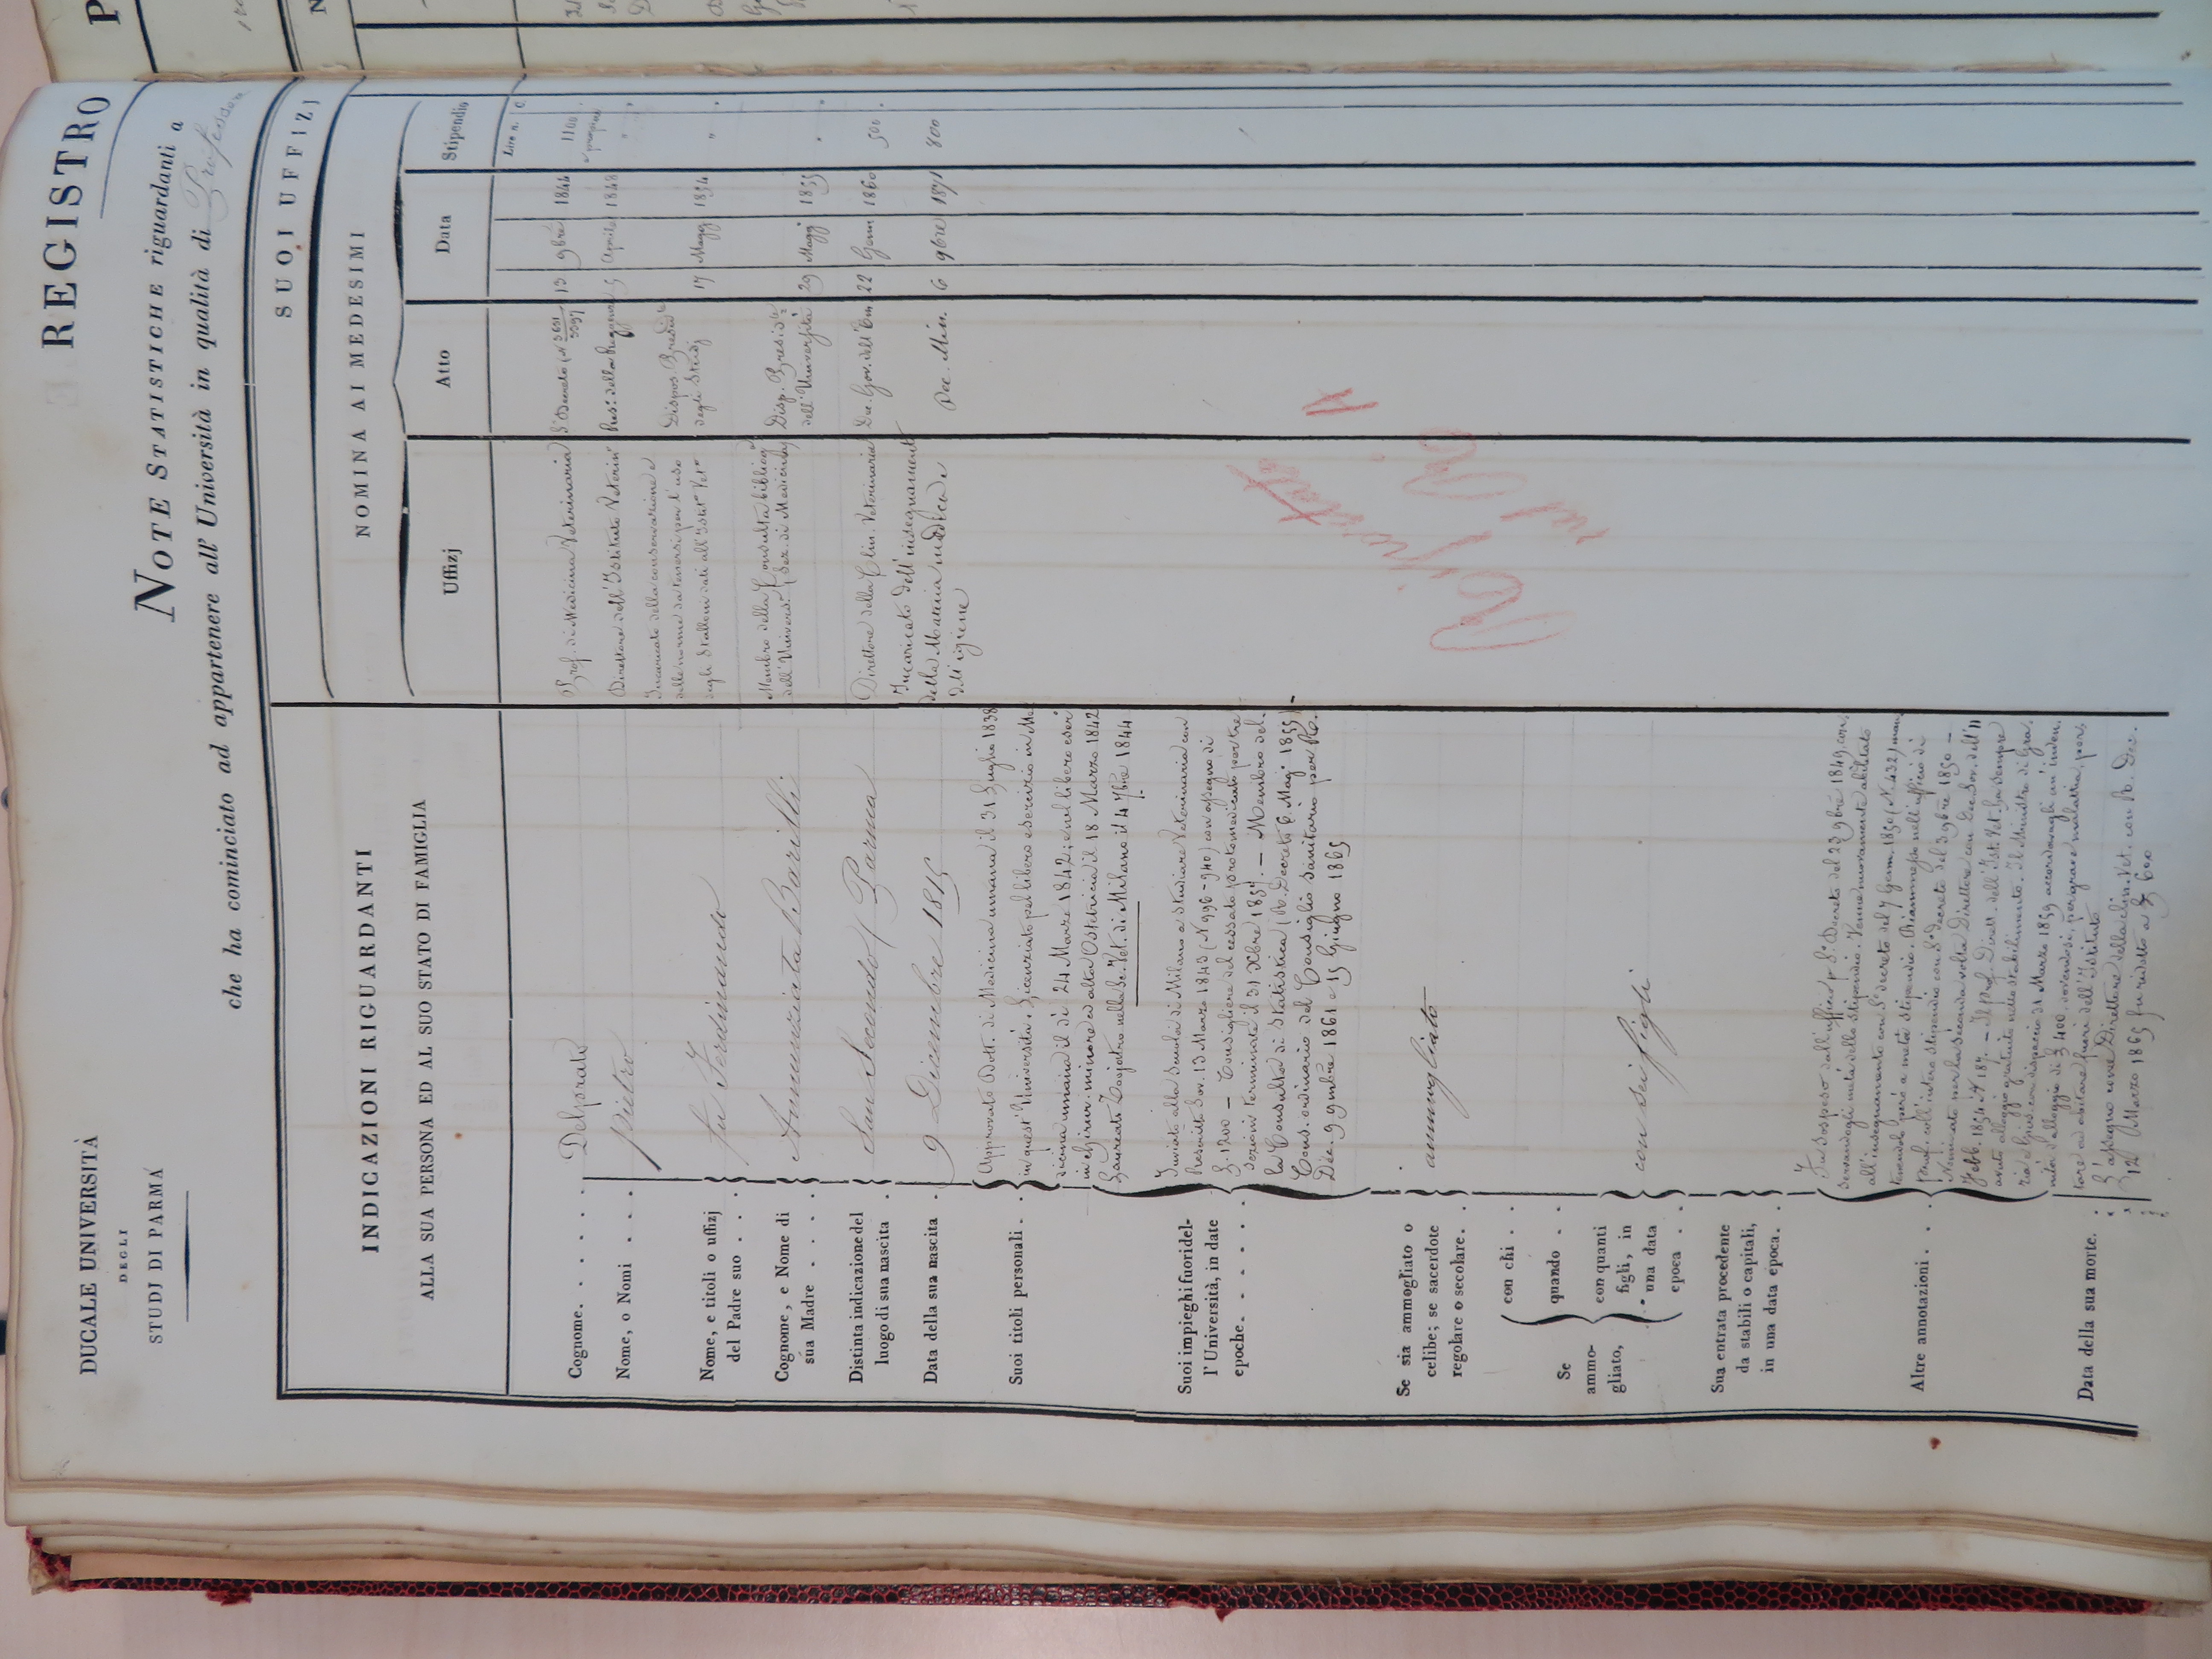 REGISTRO
DUCALE UNIVERSITÀ
DEGLI
STUDJ DI PARMA
NOTE STATISTICHE riguardanti a
che ha cominciato ad appartenere all' Università in qualità di Professore
INDICAZIONI RIGUARDANTI
ALLA SUA PERSONA ED AL SUO STATO DI FAMIGLIA
Cognome. . . . . Delprato
Nome, o Nomi . . . Pietro
Nome, e titoli o uffizj
del Padre suo . . . fu Ferdinando
Cognome, e Nome di
sua Madre . . . . Annunziata Barilli
Distinta indicazione del
luogo di sua nascita . San Secondo (Parma
Data della sua nascita . 9 Dicembre 1815
Suoi titoli personali. .
Approvato Dott. di Medicina umana il 31 Luglio 1838
in quest' Università. Licenziato pel libero esercizio in Me-
dicina umana il dì 24 Marzo 1842; e nel libero eser
in Chirur. minore ed alta Ostetricia il 18 Marzo 1842
Laureato Zoojatro nella Sc. Vet. di Milano il 4 7bre 1844
Suoi impieghi fuori del-
l' Università, in date
epoche. . . . . .
Inviato alla Scuola di Milano a studiare Veterinaria con
Rescritto Sov. 13 Marzo 1843 (N 996-940) con assegno di
L. 1200 - Consigliere del cessato protomedicato per tre
sezioni terminate il 31 Xbre 1857. - Membro del-
la Consulta di Statistica (R. Decreto 6. Mag. 1855) -
Cons. ordinario del Consiglio Sanitario per R.
Dec. 9 9mbre 1861 e 15 Giugno 1865
Se sia ammogliato o
celibe; se sacerdote
regolare o secolare. . ammogliato
Se
ammo-
gliato,
con chi . .
quando . .
con quanti
figli, in
una data
epoca . . con sei figli
Sua entrata procedente
da stabili o capitali,
in una data epoca. .
Altre annotazioni. . .
Fu sospeso dall'uffizio p S.° Decreto del 23 9bre 1849, con-
servandogli metà dello stipendio. Venne nuovamente abilitato
all'insegnamento con S° decreto del 7 Genn. 1850 (N. 432) man-
tenendolo però a metà stipendio. Riammesso nell'ufficio di
Prof. coll'intero stipendio con S° decreto del 3 9bre 1850 -
Nominato per la seconda volta Direttore con Dec. Sov. dell' 11
Febb. 1854 N° 187. - Il Prof. Dirett. dell'Ist. Vet. ha sempre
avuto alloggio gratuito nello stabilimento. Il Ministro di Gra-
zia e Gius. con dispaccio 31 Marzo 1859 accordavagli un'inden-
nità d'alloggio di L 400. dovendosi, per grave malattia, por-
tare ad abitare fuori dell'Istituto
L'assegno come Direttore della Clin. Vet. con R. Dec.
12 Marzo 1865 fu ridotto a L 600
Data della sua morte. .
SUOI UFFIZJ
NOMINA AI MEDESIMI
Uffizj Atto Data Stipendio
Lire n. C.
Prof. di Medicina Veterinaria S° Decreto (N 3651/3397 13 9bre 1844 1100
Direttore dell'Istituto Veterin° Res: della Reggenza 5 Aprile 1848 "
Incaricato della conservazione e
delle norme da tenersi per l'uso Dispos. Presid.le
degli Stalloni dati all'Istit° Vet° degli Studj 17 Magg 1854 "
Membro della Consulta bibliog.a Disp. Presid.le
dell'Univers. (Sez. di Medicina) dell'Università 29 Magg 1855 "
Direttore della Clin. Veterinaria Dec. Gov. dell'Em. 22 Genn 1860 500.
Incaricato dell'insegnamento
della Materia medica e Dec. Min. 6 9bre 1871 800
dell'igiene